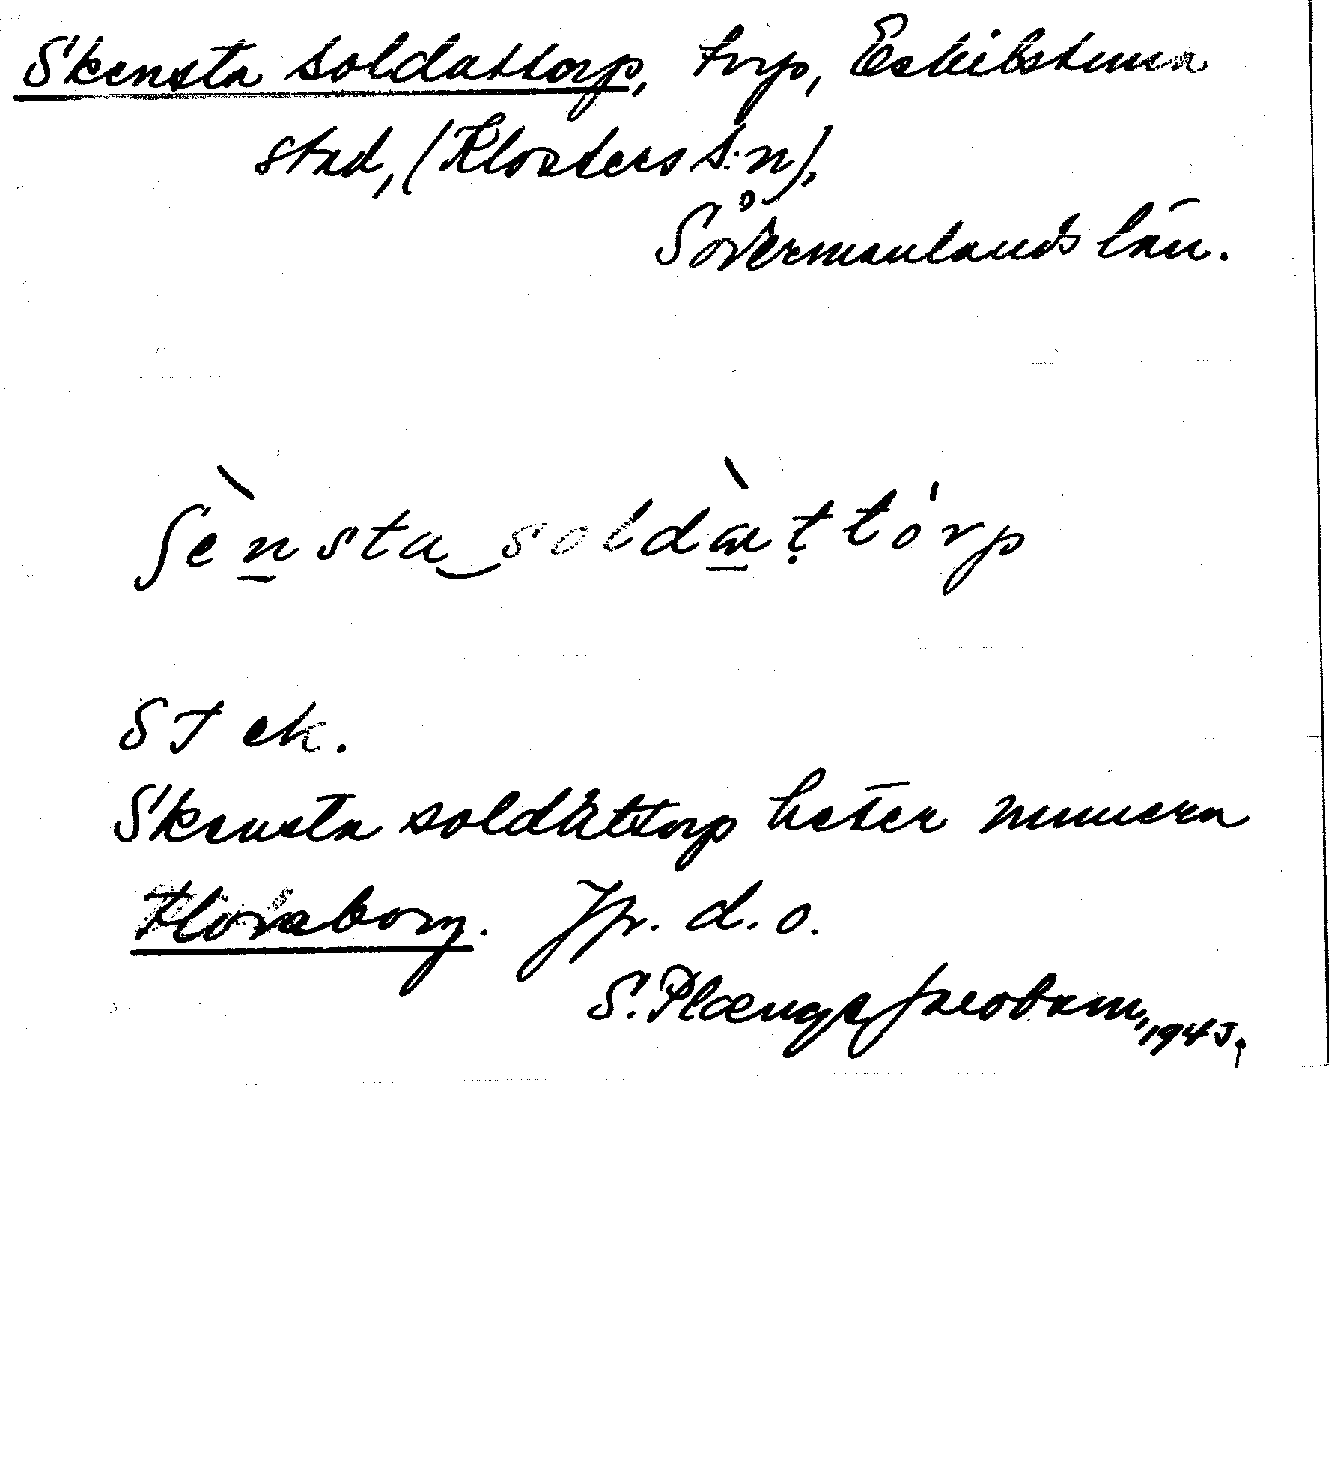 Skensta soldattorp, torp, Eskilstuna
stad, (Klosters s:n),
Södermanlands län.
ʃènsta soldàttórp
ST ek.
Skensta soldattorp heter numera
Floraborg. Jfr. d. o.
S. Plænge Jacobson, 1945.